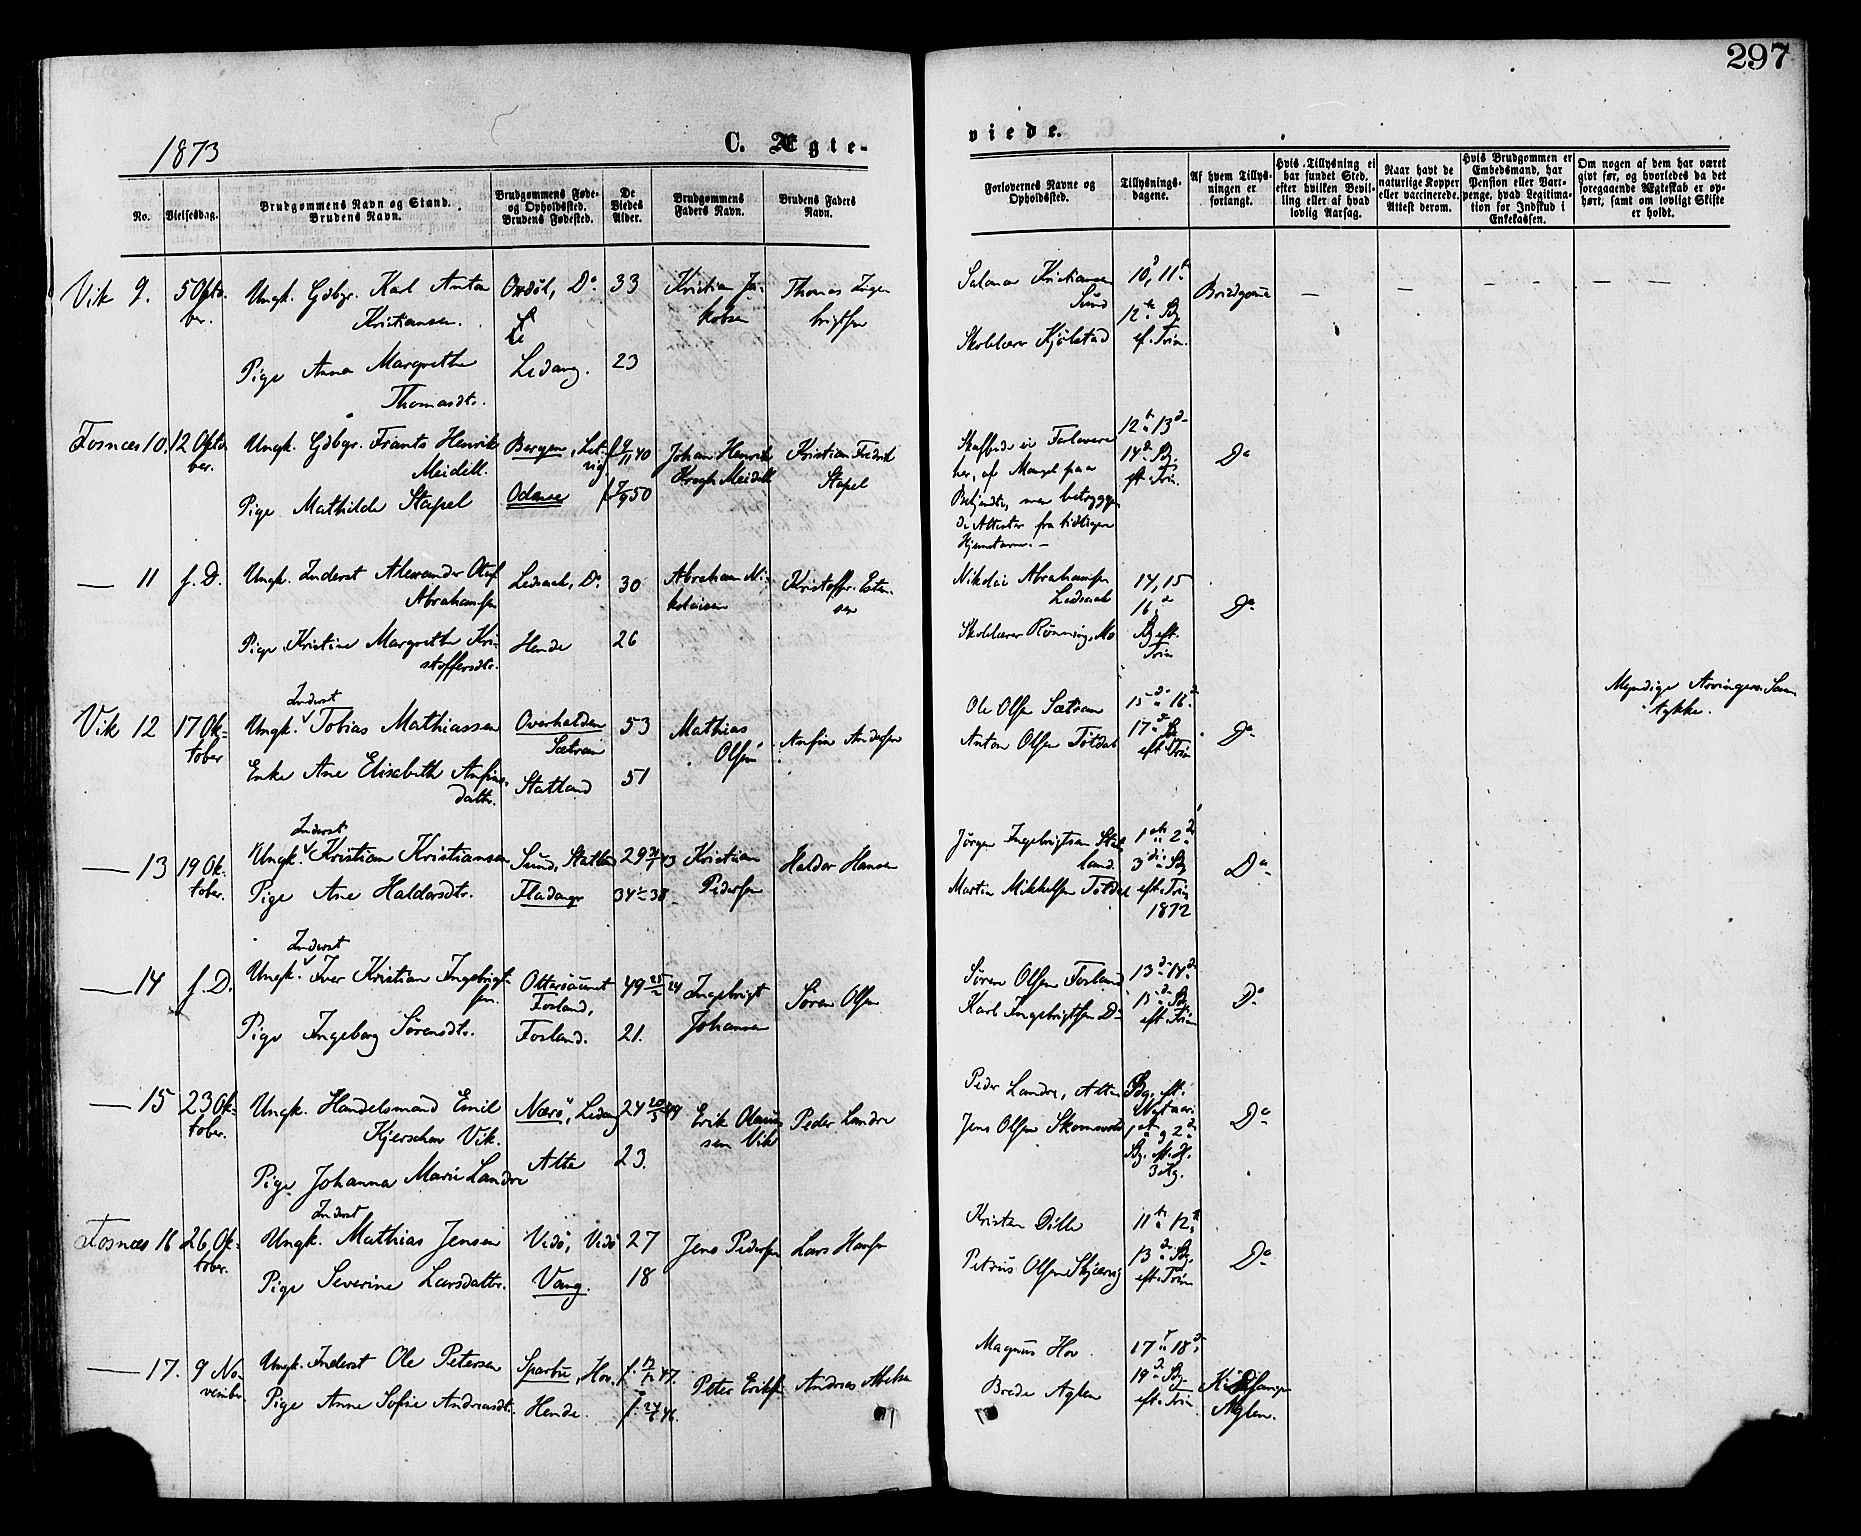 297
1873
C. Ægte-
viede.
No.
Vielsesdag.
Brudgommens Navn og Stand.
Brudens Navn.
Brudgommens Føde-
og Opholdssted.
Brudens Fødested.
De
Viedes
Alder.
Brudgommens
Faders Navn.
Brudens Faders
Navn.
Forlovernes Navne og
Opholdssted.
Tillysnings-
dagene.
Af hvem Tillys-
ningen er
forlangt.
Hvis Tillysning ei
har fundet Sted,
efter hvilken Bevil-
ling eller af hvad
lovlig Aarsag.
Naar havt de
naturlige Kopper
eller vaccinerede.
Attest derom.
Hvis Brudgommen er
Embedsmand, har
Pension eller Vart-
penge, hvad Legitima-
tion for Indskud i
Enkekassen.
Om nogen af dem har været
givt før, og hvorledes da det
foregaaende Ægteskab er op-
hørt, samt om lovligt Skifte
er holdt.
Vik 9.
5 Okto-
ber.
Ungk. Gdbgr. Karl Anton
Kristiansen.
Pige Anna Margrethe
Thomasdtr.
Do
Ledang.
33
23
Kristian Ja-
kobsen
Thomas Inge-
brigtsen
Salomon Kristiansen
Sund
Skolelærer Kjølstad
10, 11
12 Sg.
ef. Trin.
Brudgom
Fosnæs 10.
12 Okto-
ber.
Ungk. Gdbgr. Frants Henrik
Meidell.
Pige Mathilde Stapel
Bergen,
Odense
f. 9/11 40
f. 7/9 50
Johan Henrik
Kragh Meidell
Kristian Fredrik
Stapel
Skaffede ei Forlovere
her, af Mangel paa
Bekjendte, men betryggen-
de Attester fra tidligere
Hjemsteder. —
12 13
14 Sg.
eft. Trin.
Do
— 11
f. D.
Ungk. Inderst Alexander Oluf
Abrahamsen
Pige Kristine Margrethe Kri-
stoffersdtr.
Ledsaak, Do
Hende
30
26
Abraham Ni-
kolaisen
Kristoffer Esten-
sen
Nikolai Abrahamsen
Ledsaak
Skolelærer Rønning, Mo
14, 15
16
Sg eft.
Trin
Do
Vik 12
17 Ok-
tober
Inderst
Ungk. Tobias Mathiassen
Enke Ane Elisabeth Anfins-
datter.
Overhalden
Sætran
Statland
53
51
Mathias
Olsen
Anfin Andersen
Ole Olsen Sætran
Anton Olsen Tøtdal
15 16
17 Sg
eft. Trin
Do
Myndige Arvingers Sam-
tykke.
— 13
19 Ok-
tober.
Inderst
Ungk. Kristian Kristiansen
Pige Ane Haldorsdtr.
Sund, Statland
Fladanger
29
34
38
Kristian
Pedersen
Haldor Hansen
Jørgen Ingebrigtsen Stat-
land.
Martin Mikkelsen Tøtdal
1 2
3 Sg
eft. Trin
1872
Do
— 14
f. D.
Inderst
Ungk. Iver Kristian Ingebrigt-
sen.
Pige Ingeborg Sørensdtr.
Ottersäunet
Fosland,
Fosland.
49 25/2 24
21.
Ingebrigt
Johansen
Søren Olsen
Søren Olsen Fosland
Karl Ingebrigtsen Do
13 14
15 Sg
eft. Trin
Do
— 15
23 Ok-
tober.
Ungk. Handelsmand Emil
Kjerschow Vik.
Pige Johanna Marie Landre
Nærö, Ledang
Alte
24
23.
Erik Olaus-
sen Vik
Peder Landre
Peder Landre, Alte
Jens Olsen
Sdg. eft.
1 g 2
Sg. eft. H.
3 Kg.
Do
Fosnæs 16
26 Ok-
tober.
Inderst
Ungk. Mathias Jensen
Pige Severine Larsdatter.
Vedø, Vedø
Vang.
27
18
Jens Pedersen
Lars Hansen
Kristen Dille
Petrus Olsen Skjærvig
11 12
13 Sg.
eft. Trin
Do
— 17.
9 No-
vember
Ungk. Inderst Ole Petersen
Pige Anne Sofie Andreasdtr.
Sparbu, Hov.
Hende.
f. 12/12 47.
f. 24/6 46.
Peter Eriksen
Andreas Abelsen
Magnus Hov.
Brede Aglen
17 18
19 Sg
eft. Trin
Aglen.